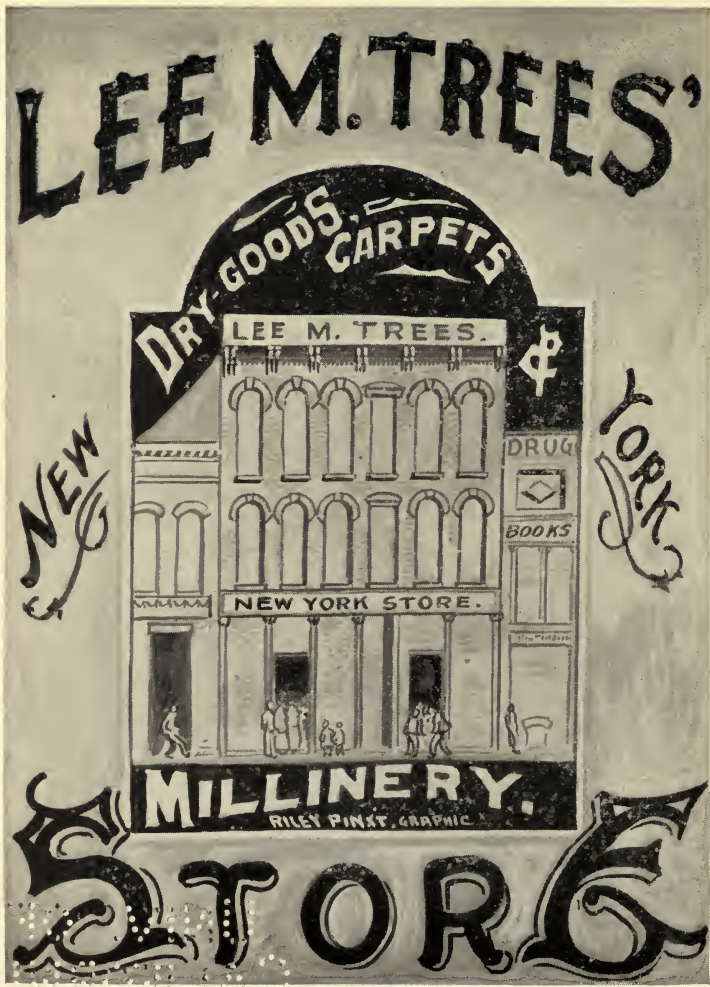 LEE M. TREES'
DRY-GOODS, CARPETS
&
LEE M. TREES.
NEW YORK
DRUG
BOOKS
NEW YORK STORE.
MILLINERY.
RILEY PINXT. GRAPHIC
STORE